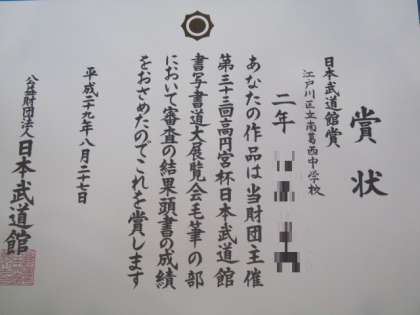 賞状
日本武道館賞
江戸川区立南葛西中学校
二年
あなたの作品は当財団主催
第三十三回高円宮杯日本武道館
書写書道大展覧会毛筆の部
において審査の結果頭書の成績
をおさめたのでこれを賞します
平成二十九年八月二十七日
公益財団法人日本武道館